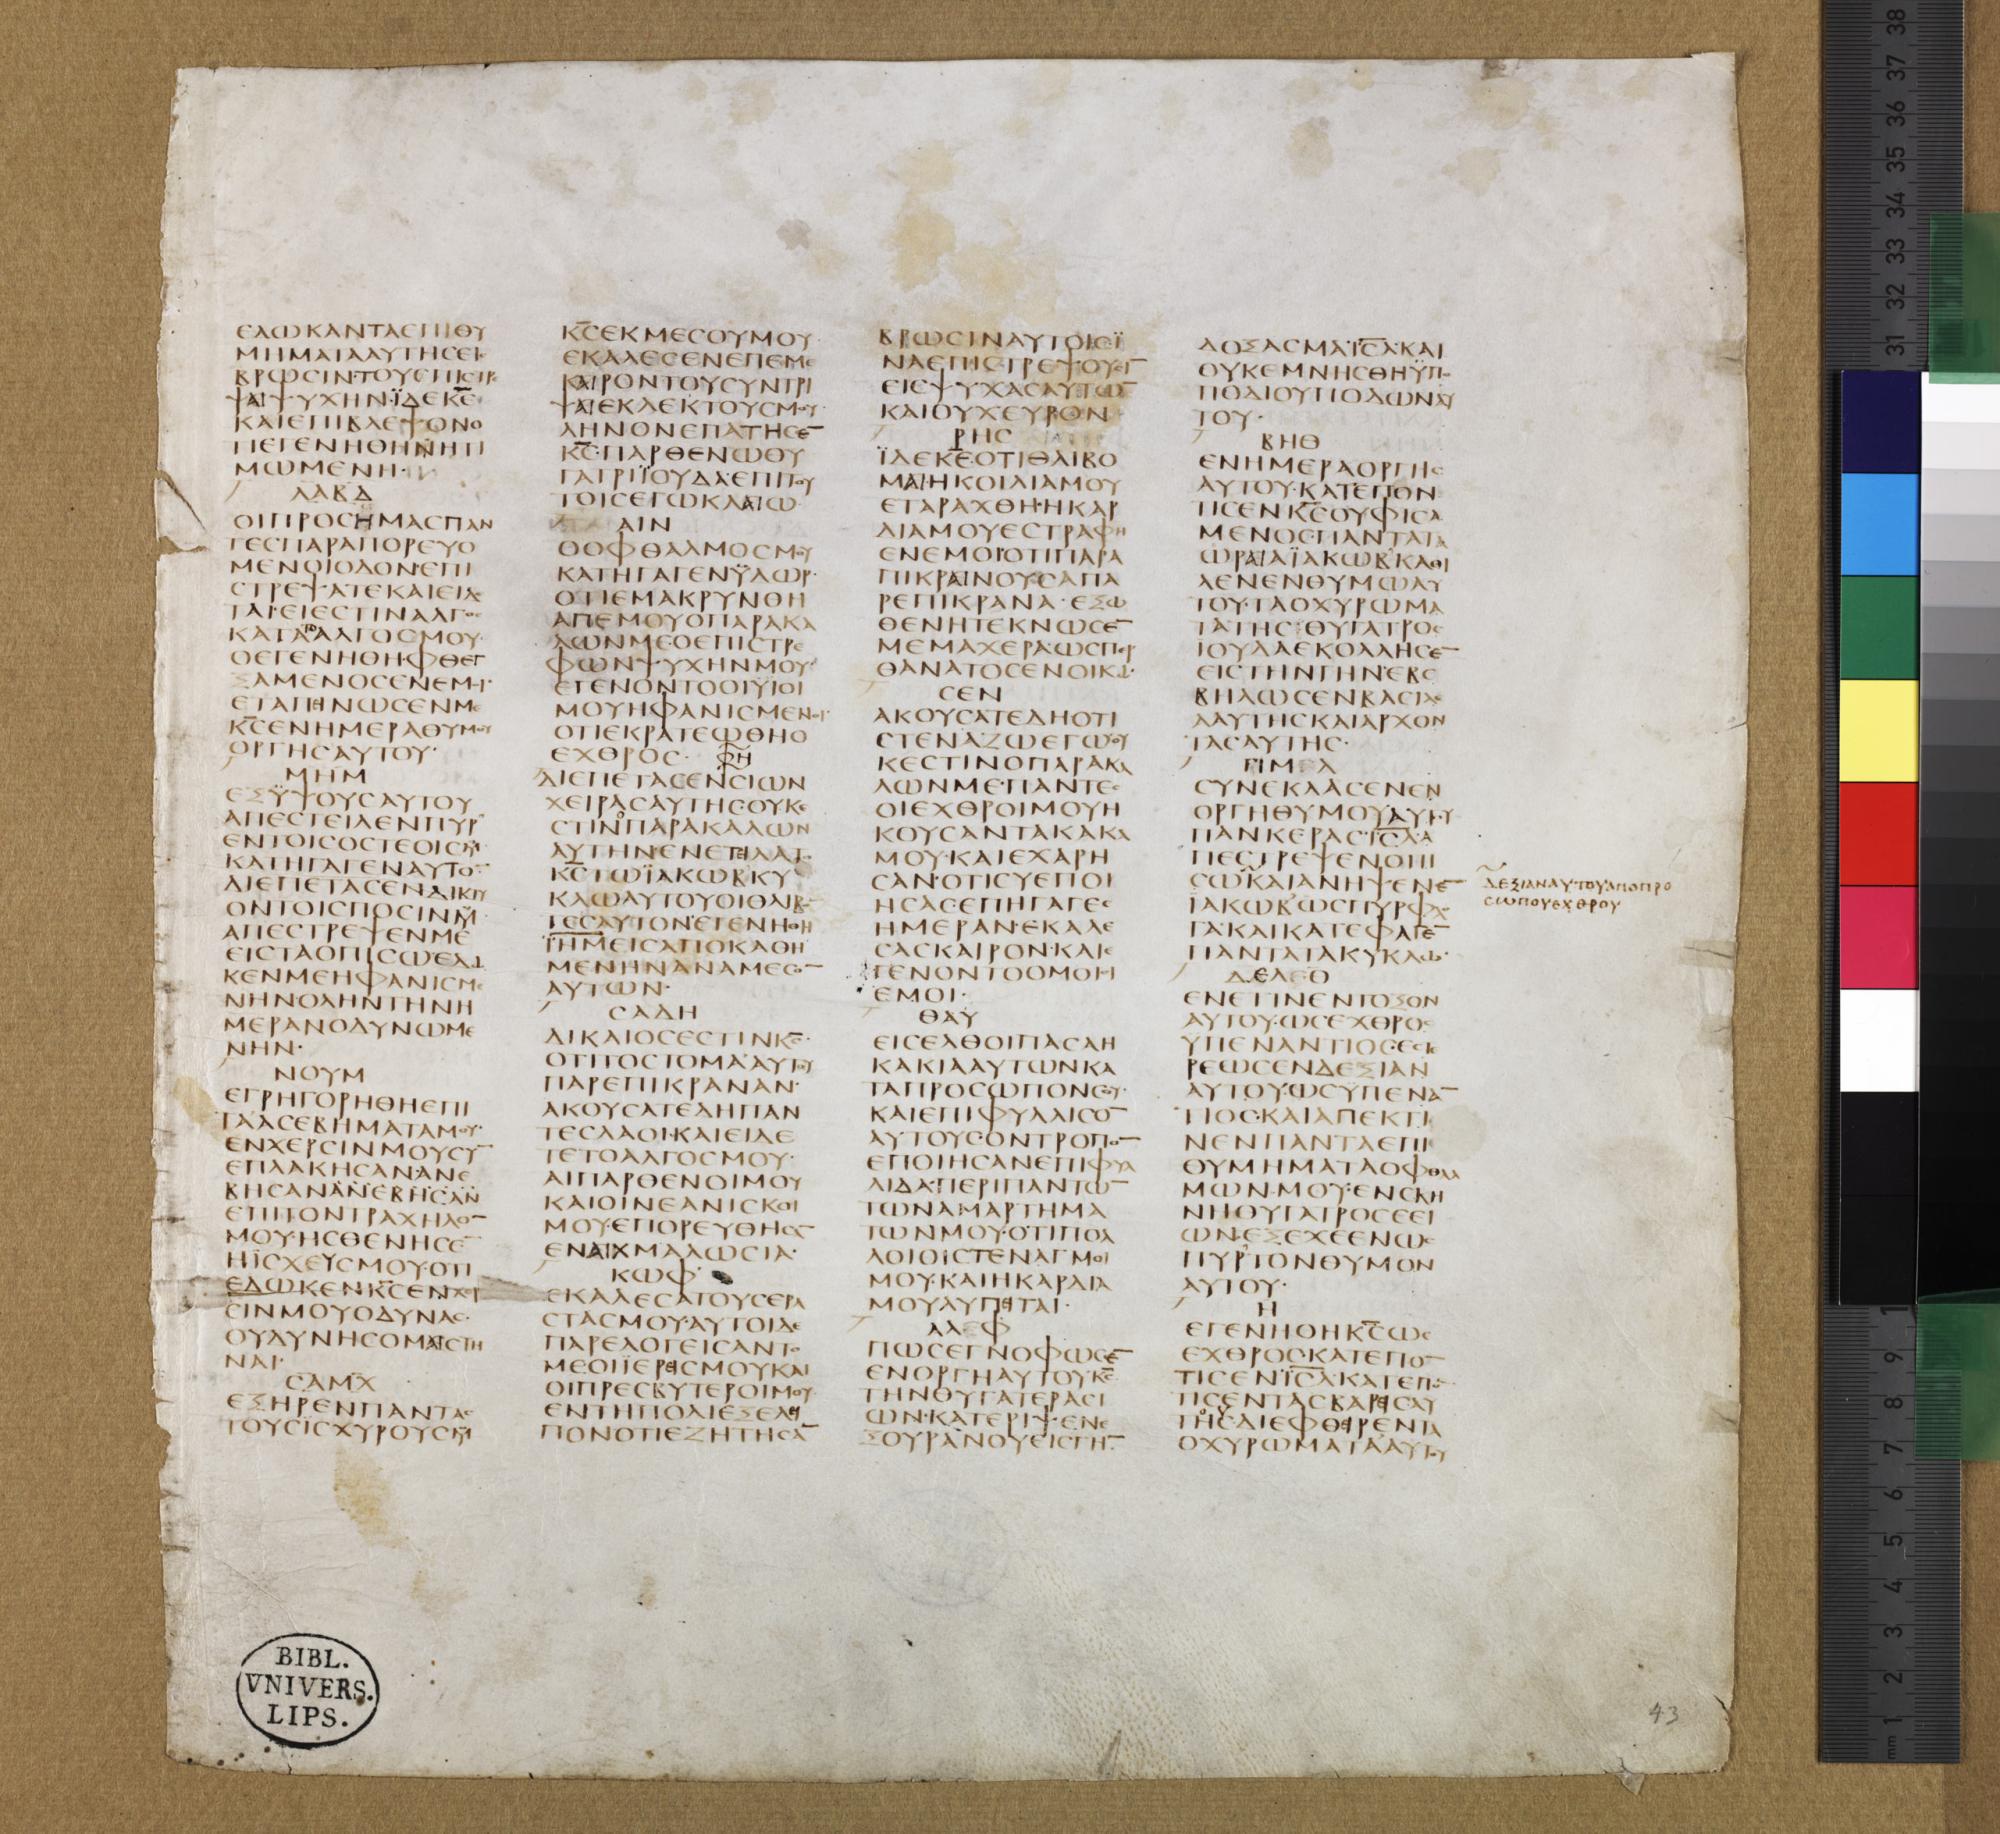 ΕΔΩΚΑΝΤΑΕΠΙΘΥ
ΜΗΜΑΤΑΑΥΤΗϹΕΝ
ΒΡΩϹΙΝΤΟΥΕΠΙϹΤΡΕ
ΨΑΙΨΥΧΗΝ·ΪΔΕΚΕ
ΚΑΙΕΠΙΒΛΕΨΟΝΟ
ΤΙΕΓΕΝΗΘΗΝΗΤΙ
ΜΩΜΕΝΗ·
ΛΑΒΔ
ΟΙΠΡΟϹΗΜΑϹΠΑΝ
ΤΕϹΠΑΡΑΠΟΡΕΥΟ
ΜΕΝΟΙΟΔΟΝΕΠΙ
ϹΤΡΕΨΑΤΕΚΑΙΕΙΔΕ
ΤΑΙ·ΕΙΕϹΤΙΝΑΛΓΟϹ
ΚΑΤΑΤΟΑΛΓΟϹΜΟΥ
ΟΕΓΕΝΗΘΗ·ΦΘΕΓ
ΞΑΜΕΝΟϹΕΝΕΜΟΙ·
ΕΤΑΠΙΝΩϹΕΝΜΕ
ΚϹΕΝΗΜΕΡΑΘΥΜΟΥ
ΟΡΓΗϹΑΥΤΟΥ·
ΜΗΜ
ΕΞΫΨΟΥϹΑΥΤΟΥ
ΑΠΕϹΤΕΙΛΕΝΠΥΡ
ΕΝΤΟΙϹΟϹΤΕΟΙϹΜΟΥ
ΚΑΤΗΓΑΓΕΝΑΥΤΟ
ΔΙΕΠΕΤΑϹΕΝΔΙΚΤΥ
ΟΝΤΟΙϹΠΟϹΙΝΜΟΥ
ΑΠΕϹΤΡΕΨΕΝΜΕ
ΕΙϹΤΑΟΠΙϹΩΕΔΩ
ΚΕΝΜΕΗΦΑΝΙϹΜΕ
ΝΗΝΟΛΗΝΤΗΝΗ
ΜΕΡΑΝΟΔΥΝΩΜΕ
ΝΗΝ·
ΝΟΥΜ
ΕΓΡΗΓΟΡΗΘΗΕΠΙ
ΤΑΑϹΕΒΗΜΑΤΑΜΟΥ·
ΕΝΧΕΡϹΙΝΜΟΥϹΥ
ΕΠΛΑΚΗϹΑΝ·ΑΝΕ
ΒΗϹΑΝΑΝΕΒΗϹΑΝ
ΕΠΙΤΟΝΤΡΑΧΗΛΟ
ΜΟΥ·ΗϹΘΕΝΗϹΕ
ΗΪϹΧΕΥϹΜΟΥ·ΟΤΙ
ΕΔΩΚΕΝΚϹΕΝΧΕΡ
ϹΙΝΜΟΥΟΔΥΝΑϹ·
ΟΥΔΥΝΗϹΟΜΑΙϹΤΗ
ΝΑΙ·
ϹΑΜΧ
ΕΞΗΡΕΝΠΑΝΤΑϹ
ΤΟΥϹΙϹΧΥΡΟΥϹΜΟΥ
ΚϹΕΚΜΕϹΟΥΜΟΥ
ΕΚΑΛΕϹΕΝΕΠΕΜΕ
ΚΑΙΡΟΝΤΟΥϹΥΝΤΡΙ
ΨΑΙΕΚΛΕΚΤΟΥϹΜΟΥ
ΛΗΝΟΝΕΠΑΤΗϹΕ
ΚϹ·ΠΑΡΘΕΝΩΘΥ
ΓΑΤΡΙΪΟΥΔΑ·ΕΠΙΤΟΥ
ΤΟΙϹΕΓΩΚΛΑΙΩ
ΑΙΝ
ΟΟΦΘΑΛΜΟϹΜΟΥ
ΚΑΤΗΓΑΓΕΝΫΔΩΡ·
ΟΤΙΕΜΑΚΡΥΝΘΗ
ΑΠΕΜΟΥΟΠΑΡΑΚΑ
ΛΩΝΜΕ·ΟΕΠΙϹΤΡΕ
ΦΩΝΨΥΧΗΝΜΟΥ
ΕΓΕΝΟΝΤΟΟΙΫΙΟΙ
ΜΟΥΗΦΑΝΙϹΜΕΝΟΙ·
ΟΤΙΕΚΡΑΤΕΩΘΗΟ
ΕΧΘΡΟϹ· ΦΗ
ΔΙΕΠΕΤΑϹΕΝϹΙΩΝ
ΧΕΙΡΑϹΑΥΤΗϹΟΥΚΕ
ϹΤΙΝΟΠΑΡΑΚΑΛΩΝ
ΑΥΤΗΝ·ΕΝΕΤΙΛΑΤΟ
ΚϹΤΩΪΑΚΩΒΚΥ
ΚΛΩΑΥΤΟΥΟΙΘΛΙΒ
ΤΕϹΑΥΤΟΝΕΓΕΝΗΘΗ
ΤΗΜΕΙϹΑΠΟΚΑΘΗ
ΜΕΝΗΝΑΝΑΜΕϹΟ
ΑΥΤΩΝ·
ϹΑΔΗ
ΔΙΚΑΙΟϹΕϹΤΙΝΚϹ·
ΟΤΙΤΟϹΤΟΜΑΑΥΤΟΥ
ΠΑΡΕΠΙΚΡΑΝΑΝ·
ΑΚΟΥϹΑΤΕΔΗΠΑΝ
ΤΕϹΛΑΟΙ·ΚΑΙΕΙΔΕ
ΤΕΤΟΑΛΓΟϹΜΟΥ·
ΑΙΠΑΡΘΕΝΟΙΜΟΥ
ΚΑΙΟΙΝΕΑΝΙϹΚΟΙ
ΜΟΥ·ΕΠΟΡΕΥΘΗϹΑ
ΕΝΑΙΧΜΑΛΩϹΙΑ·
ΚΩΦ
ΕΚΑΛΕϹΑΤΟΥϹΕΡΑ
ϹΤΑϹΜΟΥ·ΑΥΤΟΙΔΕ
ΠΑΡΕΛΟΓΕΙϹΑΝΤΟ
ΜΕΟΙΪΕΡΕΙϹΜΟΥΚΑΙ
ΟΙΠΡΕϹΒΥΤΕΡΟΙΜΟΥ
ΕΝΤΗΠΟΛΙΕΞΕΛΕΙ
ΠΟΝΟΤΙΕΖΗΤΗϹΑ
ΒΡΩϹΙΝΑΥΤΟΙϹΪ
ΝΑΕΠΙϹΤΡΕΨΟΥϹΙ
ΕΙϹΨΥΧΑϹΑΥΤΩ
ΚΑΙΟΥΧΕΥΡΟΝ
ΡΗϹ
ΪΔΕΚΕΟΤΙΘΛΙΒΟ
ΜΑΙΗΚΟΙΛΙΑΜΟΥ
ΕΤΑΡΑΧΘΗ·ΗΚΑΡ
ΔΙΑΜΟΥΕϹΤΡΑΦΗ
ΕΝΕΜΟΙ·ΟΤΙΠΑΡΑ
ΠΙΚΡΑΙΝΟΥϹΑΠΑ
ΡΕΠΙΚΡΑΝΑ·ΕΞΩ
ΘΕΝΗΤΕΚΝΩϹΕ
ΜΕΜΑΧΕΡΑΩϹΠΕΡ
ΘΑΝΑΤΟϹΕΝΟΙΚΩ·
ϹΕΝ
ΑΚΟΥϹΑΤΕΔΗΟΤΙ
ϹΤΕΝΑΖΩΕΓΩΟΥ
ΚΕϹΤΙΝΟΠΑΡΑΚΑ
ΛΩΝΜΕ·ΠΑΝΤΕϹ
ΟΙΕΧΘΡΟΙΜΟΥΗ
ΚΟΥϹΑΝΤΑΚΑΚΑ
ΜΟΥ·ΚΑΙΕΧΑΡΗ
ϹΑΝ·ΟΤΙϹΥΕΠΟΙ
ΗϹΑϹΕΠΗΓΑΓΕϹ
ΗΜΕΡΑΝ·ΕΚΑΛΕ
ϹΑϹΚΑΙΡΟΝ·ΚΑΙΕ
ΓΕΝΟΝΤΟΟΜΟΙΟΙ
ΕΜΟΙ·
ΘΑΥ
ΕΙϹΕΛΘΟΙΠΑϹΑΗ
ΚΑΚΙΑΑΥΤΩΝΚΑ
ΤΑΠΡΟϹΩΠΟΝϹΟΥ·
ΚΑΙΕΠΙΦΥΛΛΙϹΟ
ΑΥΤΟΥϹΟΝΤΡΟΠΟ
ΕΠΟΙΗϹΑΝΕΠΙΦΥΛ
ΛΙΔΑ·ΠΕΡΙΠΑΝΤΩ
ΤΩΝΑΜΑΡΤΗΜΑ
ΤΩΝΜΟΥ·ΟΤΙΠΟΛ
ΛΟΙΟΙϹΤΕΝΑΓΜΟΙ
ΜΟΥ·ΚΑΙΗΚΑΡΔΙΑ
ΜΟΥΛΥΠΕΙΤΑΙ·
ΑΛΕΦ
ΠΩϹΕΓΝΟΦΩϹΕ
ΕΝΟΡΓΗΑΥΤΟΥΚϹ
ΤΗΝΘΥΓΑΤΕΡΑϹΙ
ΩΝ·ΚΑΤΕΡΙΨΕΝΕ
ΞΟΥΡΑΝΟΥΕΙϹΓΗ
ΔΟΞΑϹΜΑΙϹΛ·ΚΑΙ
ΟΥΚΕΜΝΗϹΘΗΫΠΟ
ΠΟΔΙΟΥΠΟΔΩΝΑΥ
ΤΟΥ·
ΒΗΘ
ΕΝΗΜΕΡΑΟΡΓΗϹ
ΑΥΤΟΥ·ΚΑΤΕΠΟΝ
ΤΙϹΕΝΚϹΟΥΦΙϹΑ
ΜΕΝΟϹΠΑΝΤΑΤΑ
ΩΡΑΙΑΪΑΚΩΒ·ΚΑΘΙ
ΛΕΝΕΝΘΥΜΩΑΥ
ΤΟΥ·ΤΑΟΧΥΡΩΜΑ
ΤΑΤΗϹΘΥΓΑΤΡΟϹ
ΙΟΥΔΑΕΚΟΛΛΗϹΕ
ΕΙϹΤΗΝΓΗΝ·ΕΒΕ
ΒΗΛΩϹΕΝΒΑϹΙΛΕ
ΑΑΥΤΗϹΚΑΙΑΡΧΟΝ
ΤΑϹΑΥΤΗϹ·
ΓΙΜΕΛ
ϹΥΝΕΚΛΑϹΕΝΕΝ
ΟΡΓΗΘΥΜΟΥΑΥΤΟΥ
ΠΑΝΚΕΡΑϹΙϹΛ·Α
ΠΕϹΤΡΕΨΕΝΟΠΙ
ϹΩΚΑΙΑΝΗΨΕΝΕ
ΪΑΚΩΒΩϹΠΥΡΦΛΟ
ΓΑ·ΚΑΙΚΑΤΕΦΑΓΕ
ΠΑΝΤΑΤΑΚΥΚΛΩ·
ΔΕΛΕΘ
ΕΝΕΤΙΝΕΝΤΟΞΟΝ
ΑΥΤΟΥ·ΩϹΕΧΘΡΟϹ
ΫΠΕΝΑΝΤΙΟϹ·ΕϹΤΕ
ΡΕΩϹΕΝΔΕΞΙΑΝ
ΑΥΤΟΥ·ΩϹΫΠΕΝΑ
ΤΙΟϹ·ΚΑΙΑΠΕΚΤΙ
ΝΕΝΠΑΝΤΑΕΠΙ
ΘΥΜΗΜΑΤΑΟΦΘΑΛ
ΜΩΝΜΟΥ·ΕΝϹΚΗ
ΝΗΘΥΓΑΤΡΟϹϹΕΙ
ΩΝ·ΕΞΕΧΕΕΝΩϹ
ΠΥΡΤΟΝΘΥΜΟΝ
ΑΥΤΟΥ·
Η
ΕΓΕΝΗΘΗΚϹΩϹ
ΕΧΘΡΟϹ·ΚΑΤΕΠΟ
ΤΙϹΕΝΙϹΛΚΑΤΕΠΟ
ΤΙϹΕΝΤΑϹΒΑΡΕΙϹΑΥ
ΤΗϹΔΙΕΦΘΕΙΡΕΝΤΑ
ΟΧΥΡΩΜΑΤΑΑΥΤΟΥ
ΔΕΞΙΑΝΑΥΤΟΥΑΠΟΠΡΟ
ϹΩΠΟΥΕΧΘΡΟΥ
BIBL.
VNIVERS.
LIPS.
43